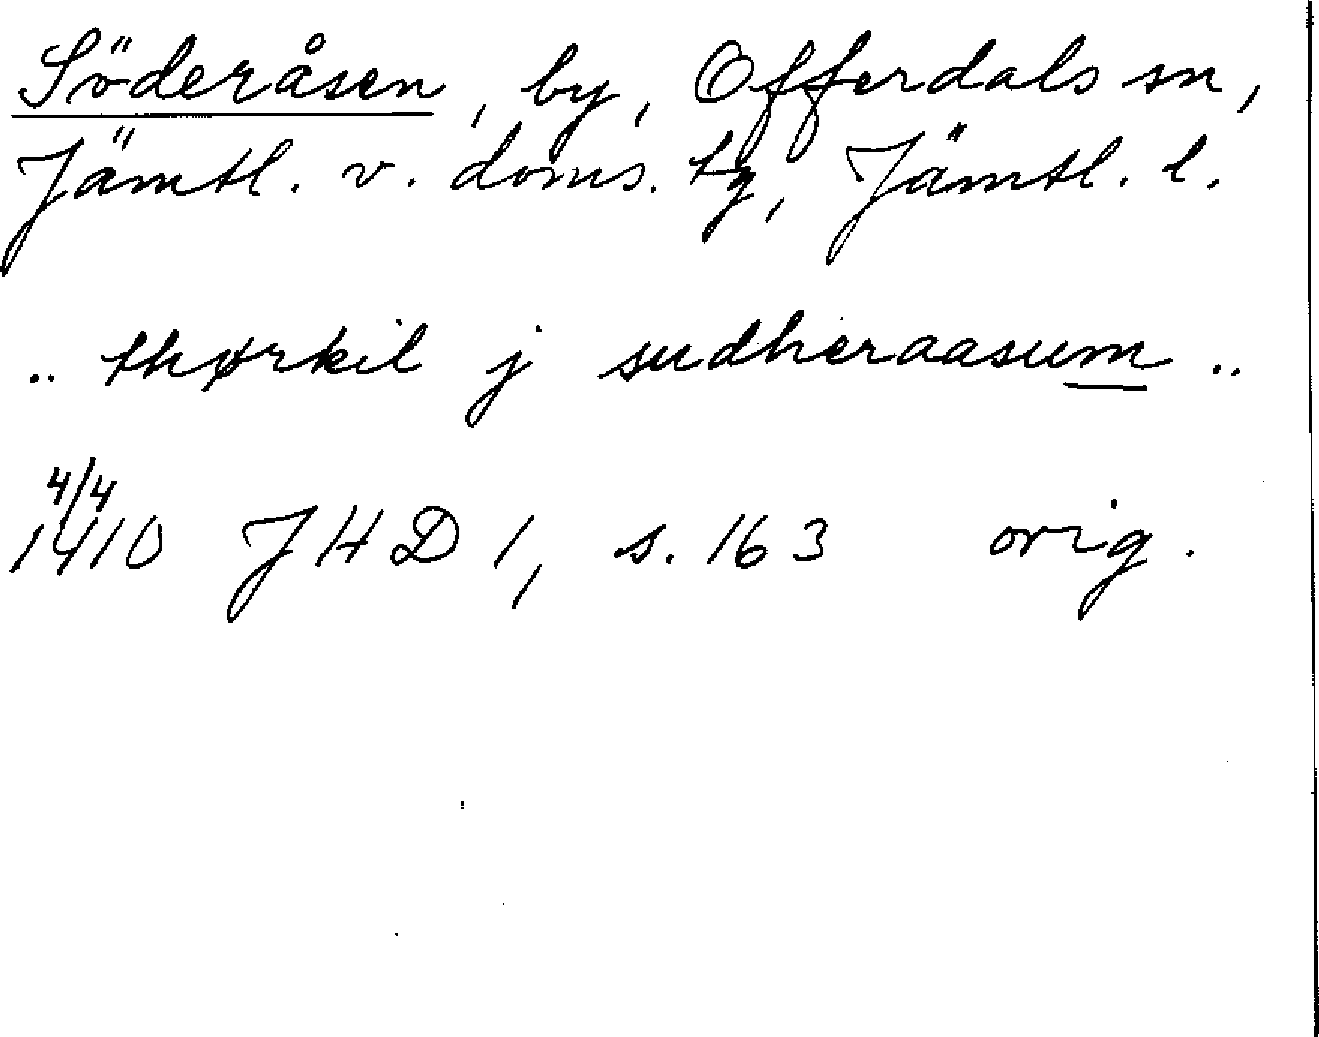 Söderåsen, by, Offerdals sn,
Jämtl. v. doms. tg, Jämtl. l.
.. thørkil j sudheraasum ..
4/4
1410 JHD 1, s. 163 orig.